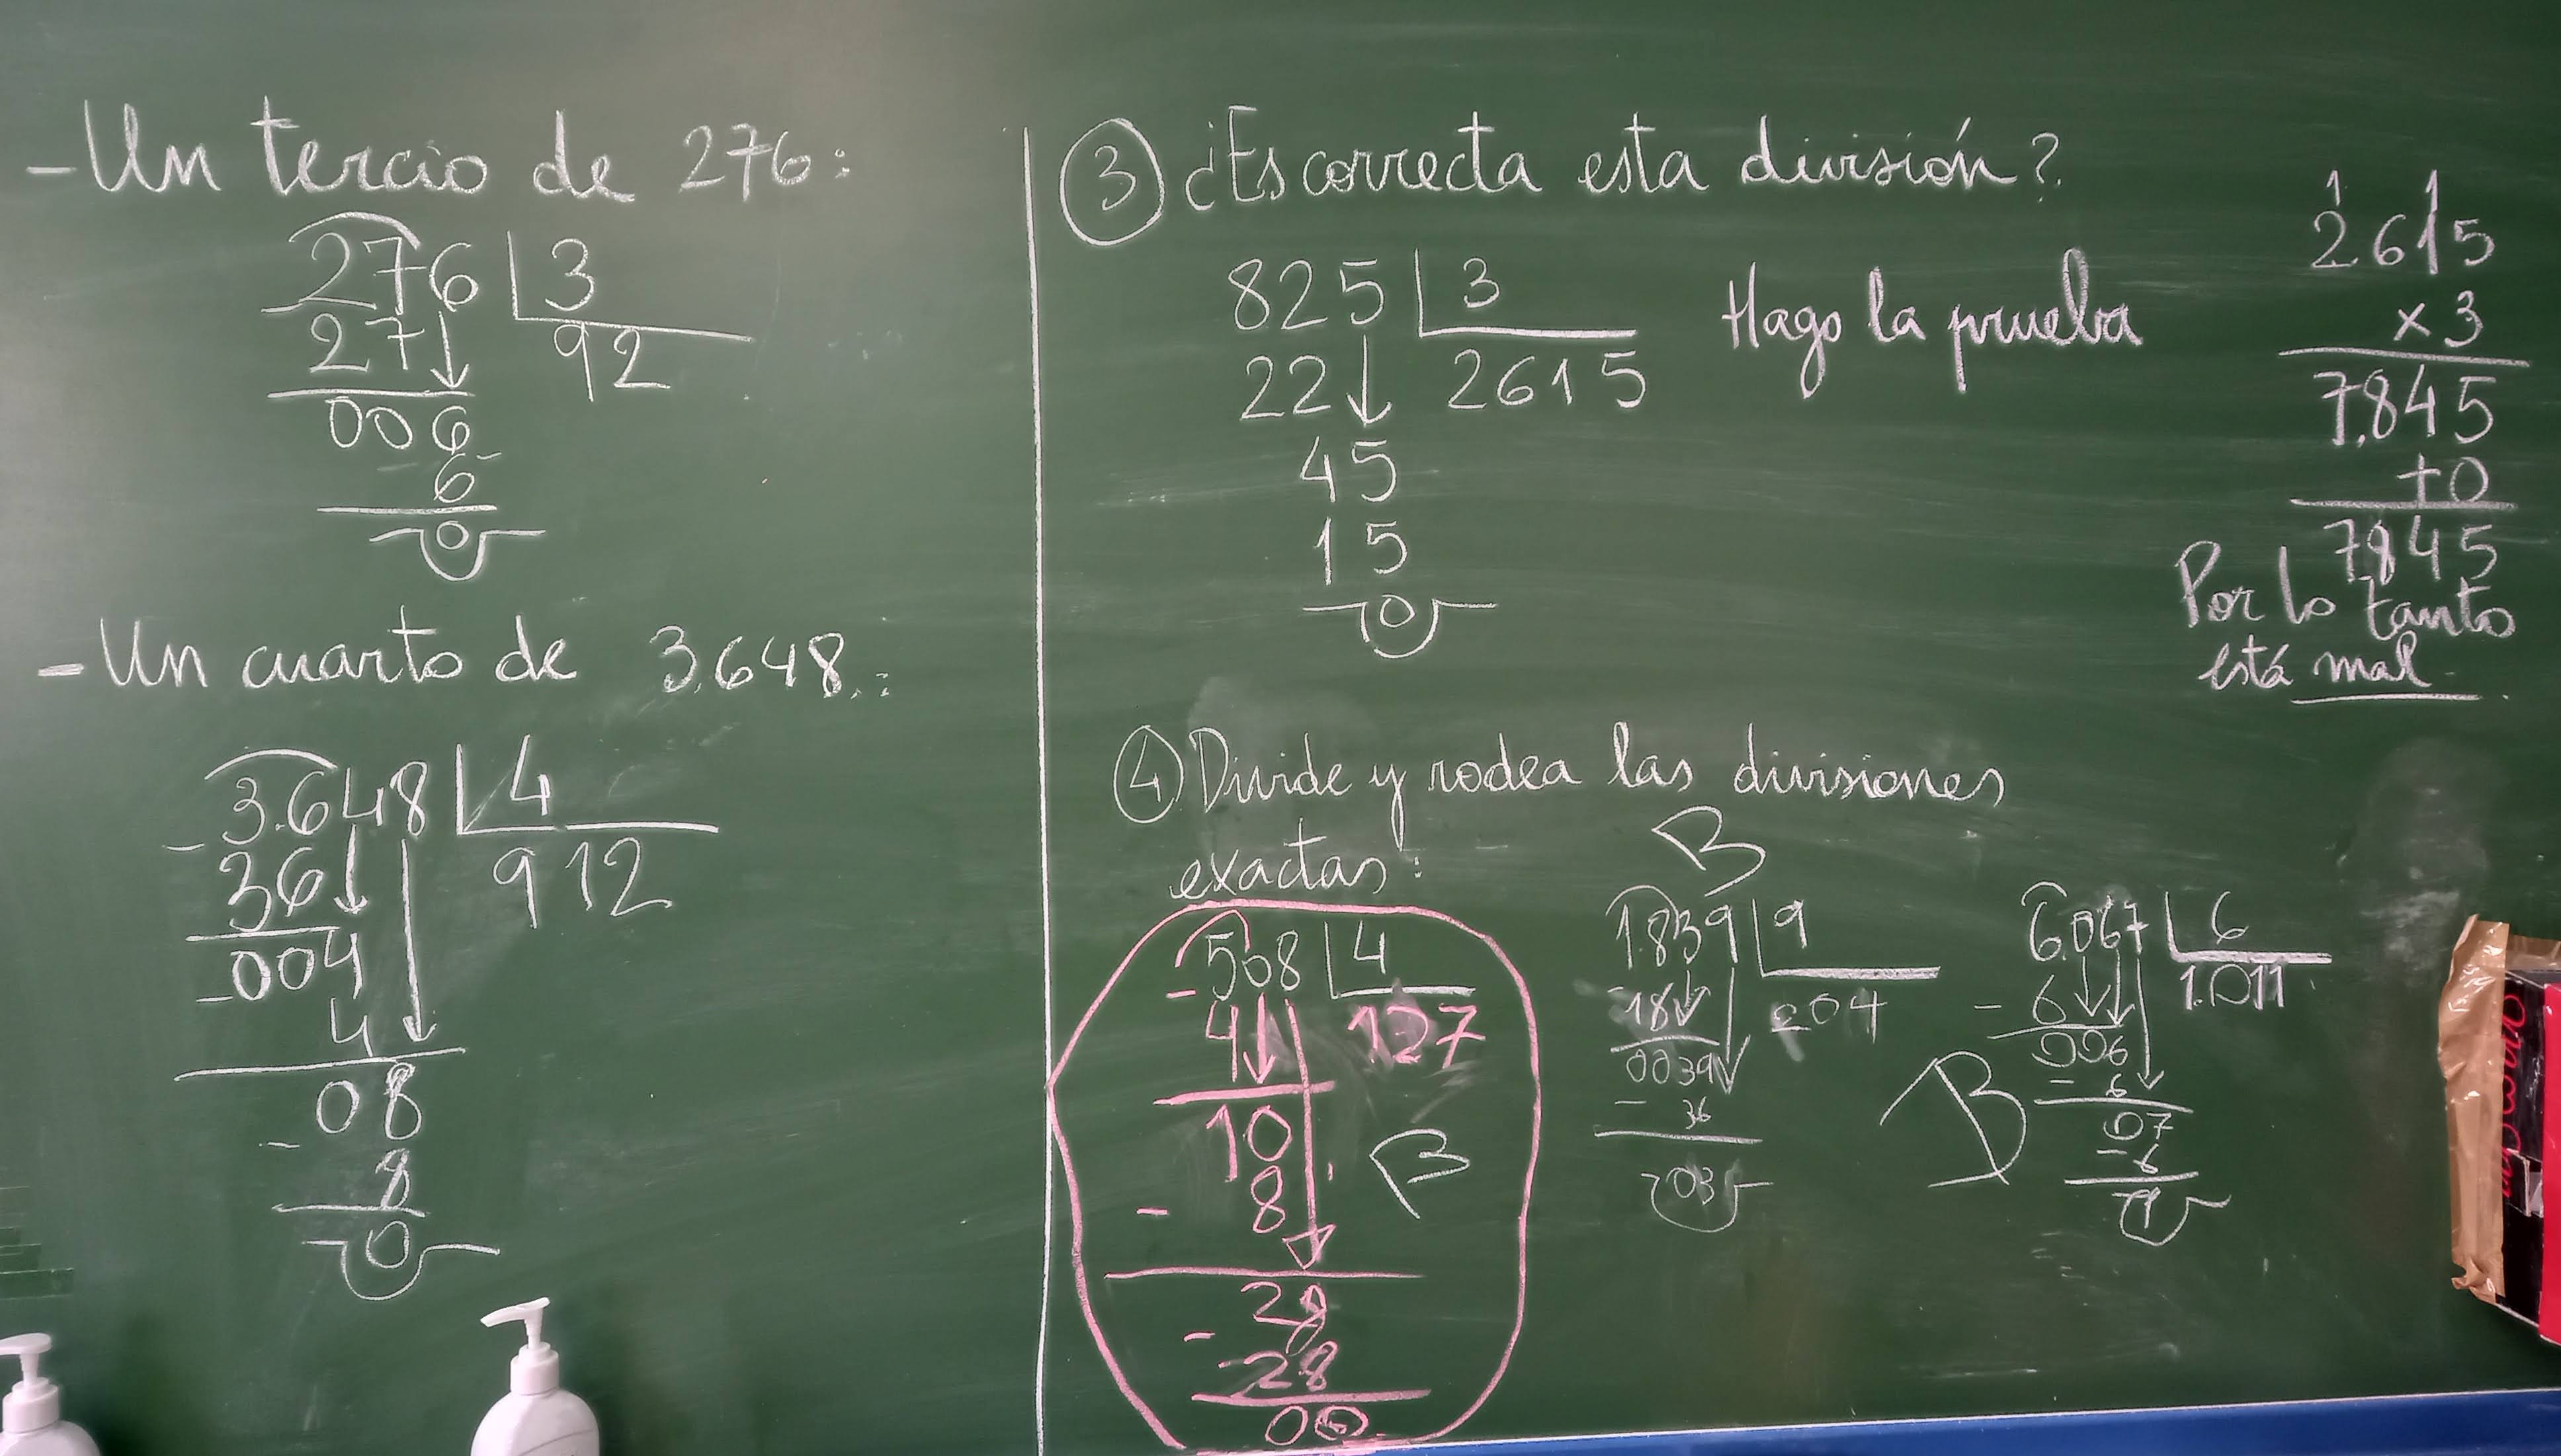 - Un tercio de 276:
276 | 3
- 27 92
006
- 6
0
- Un cuarto de 3.648.:
3.648 | 4
- 36 912
004
- 4
08
- 8
0
③ ¿Es correcta esta división?
825 | 3
22 2615
45
15
0
Hago la prueba
1 1
2615
x 3
7.845
+0
7845
Por lo tanto
está mal
④ Divide y rodea las divisiones
exactas:
508 | 4
- 4 127
10
- 8
28
- 28
00
B
B
1.839 | 9
- 18 204
0039
- 36
03
6.067 | 6
- 6 1.011
006
- 6
07
- 6
1
B